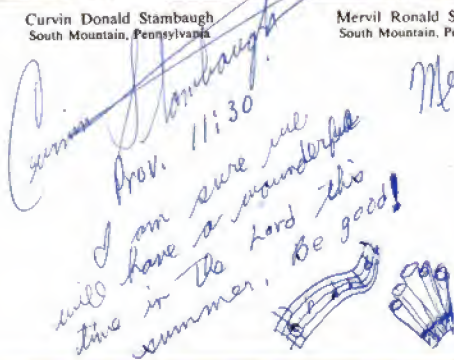 Curvin Donald Stambaugh
South Mountain, Pennsylvania
Mervil Ronald S
South Mountain, P
Curvin Stambaugh
Me
Prov. 11:30
I am sure we
will have a wounderful
time in the Lord this
summer. Be good!